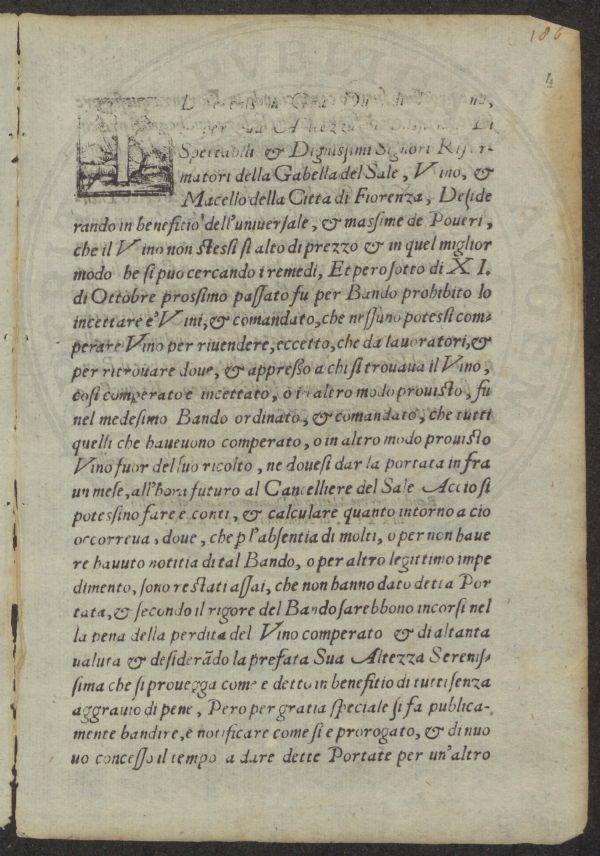 186
4
I
per Sua Altezza
Spettabili & Dignissimi Signori Rifor-
matori della Gabella del Sale, Vino, &
Macello della Citta di Fiorenza, Deside
rando in benefitio dell'uniuersale, & massime de Poueri,
che il Vino non stessi si alto di prezzo & in quel miglior
modo he si puo cercando i remedi, Et pero sotto di XI.
di Ottobre prossimo passato fu per Bando prohibito lo
incettare e' Vini, & comandato, che nessuno potessi com-
perare Vino per riuendere, eccetto, che da lauoratori, &
per ritrouare doue, & appresso a chi si trouaua il Vino,
cosi comperato e incettato, o in altro modo prouisto, fu
nel medesimo Bando ordinato, & comandato, che tutti
quelli che haueuono comperato, o in altro modo prouisto
Vino fuor del suo ricolto, ne douesi dar la portata in fra
un mese, all'hora futuro al Cancelliere del Sale Accio si
potessino fare e conti, & calculare quanto intorno a cio
occorreua, doue, che p l'absentia di molti, o per non haue
re hauuto notitia di tal Bando, o per altro legittimo impe
dimento, sono restati assai, che non hanno dato detta Por
tata, & secondo il rigore del Bando sarebbono incorsi nel
la pena della perdita del Vino comperato & di altanta
ualuta & desiderãdo la prefata Sua Altezza Serenis-
sima che si prouegga come e detto in benefitio di tutti senza
aggrauio di pene, Pero per gratia speciale si fa publica-
mente bandire, e notificare come si e prorogato, & di nuo
uo concesso il tempo a dare dette Portate per un'altro